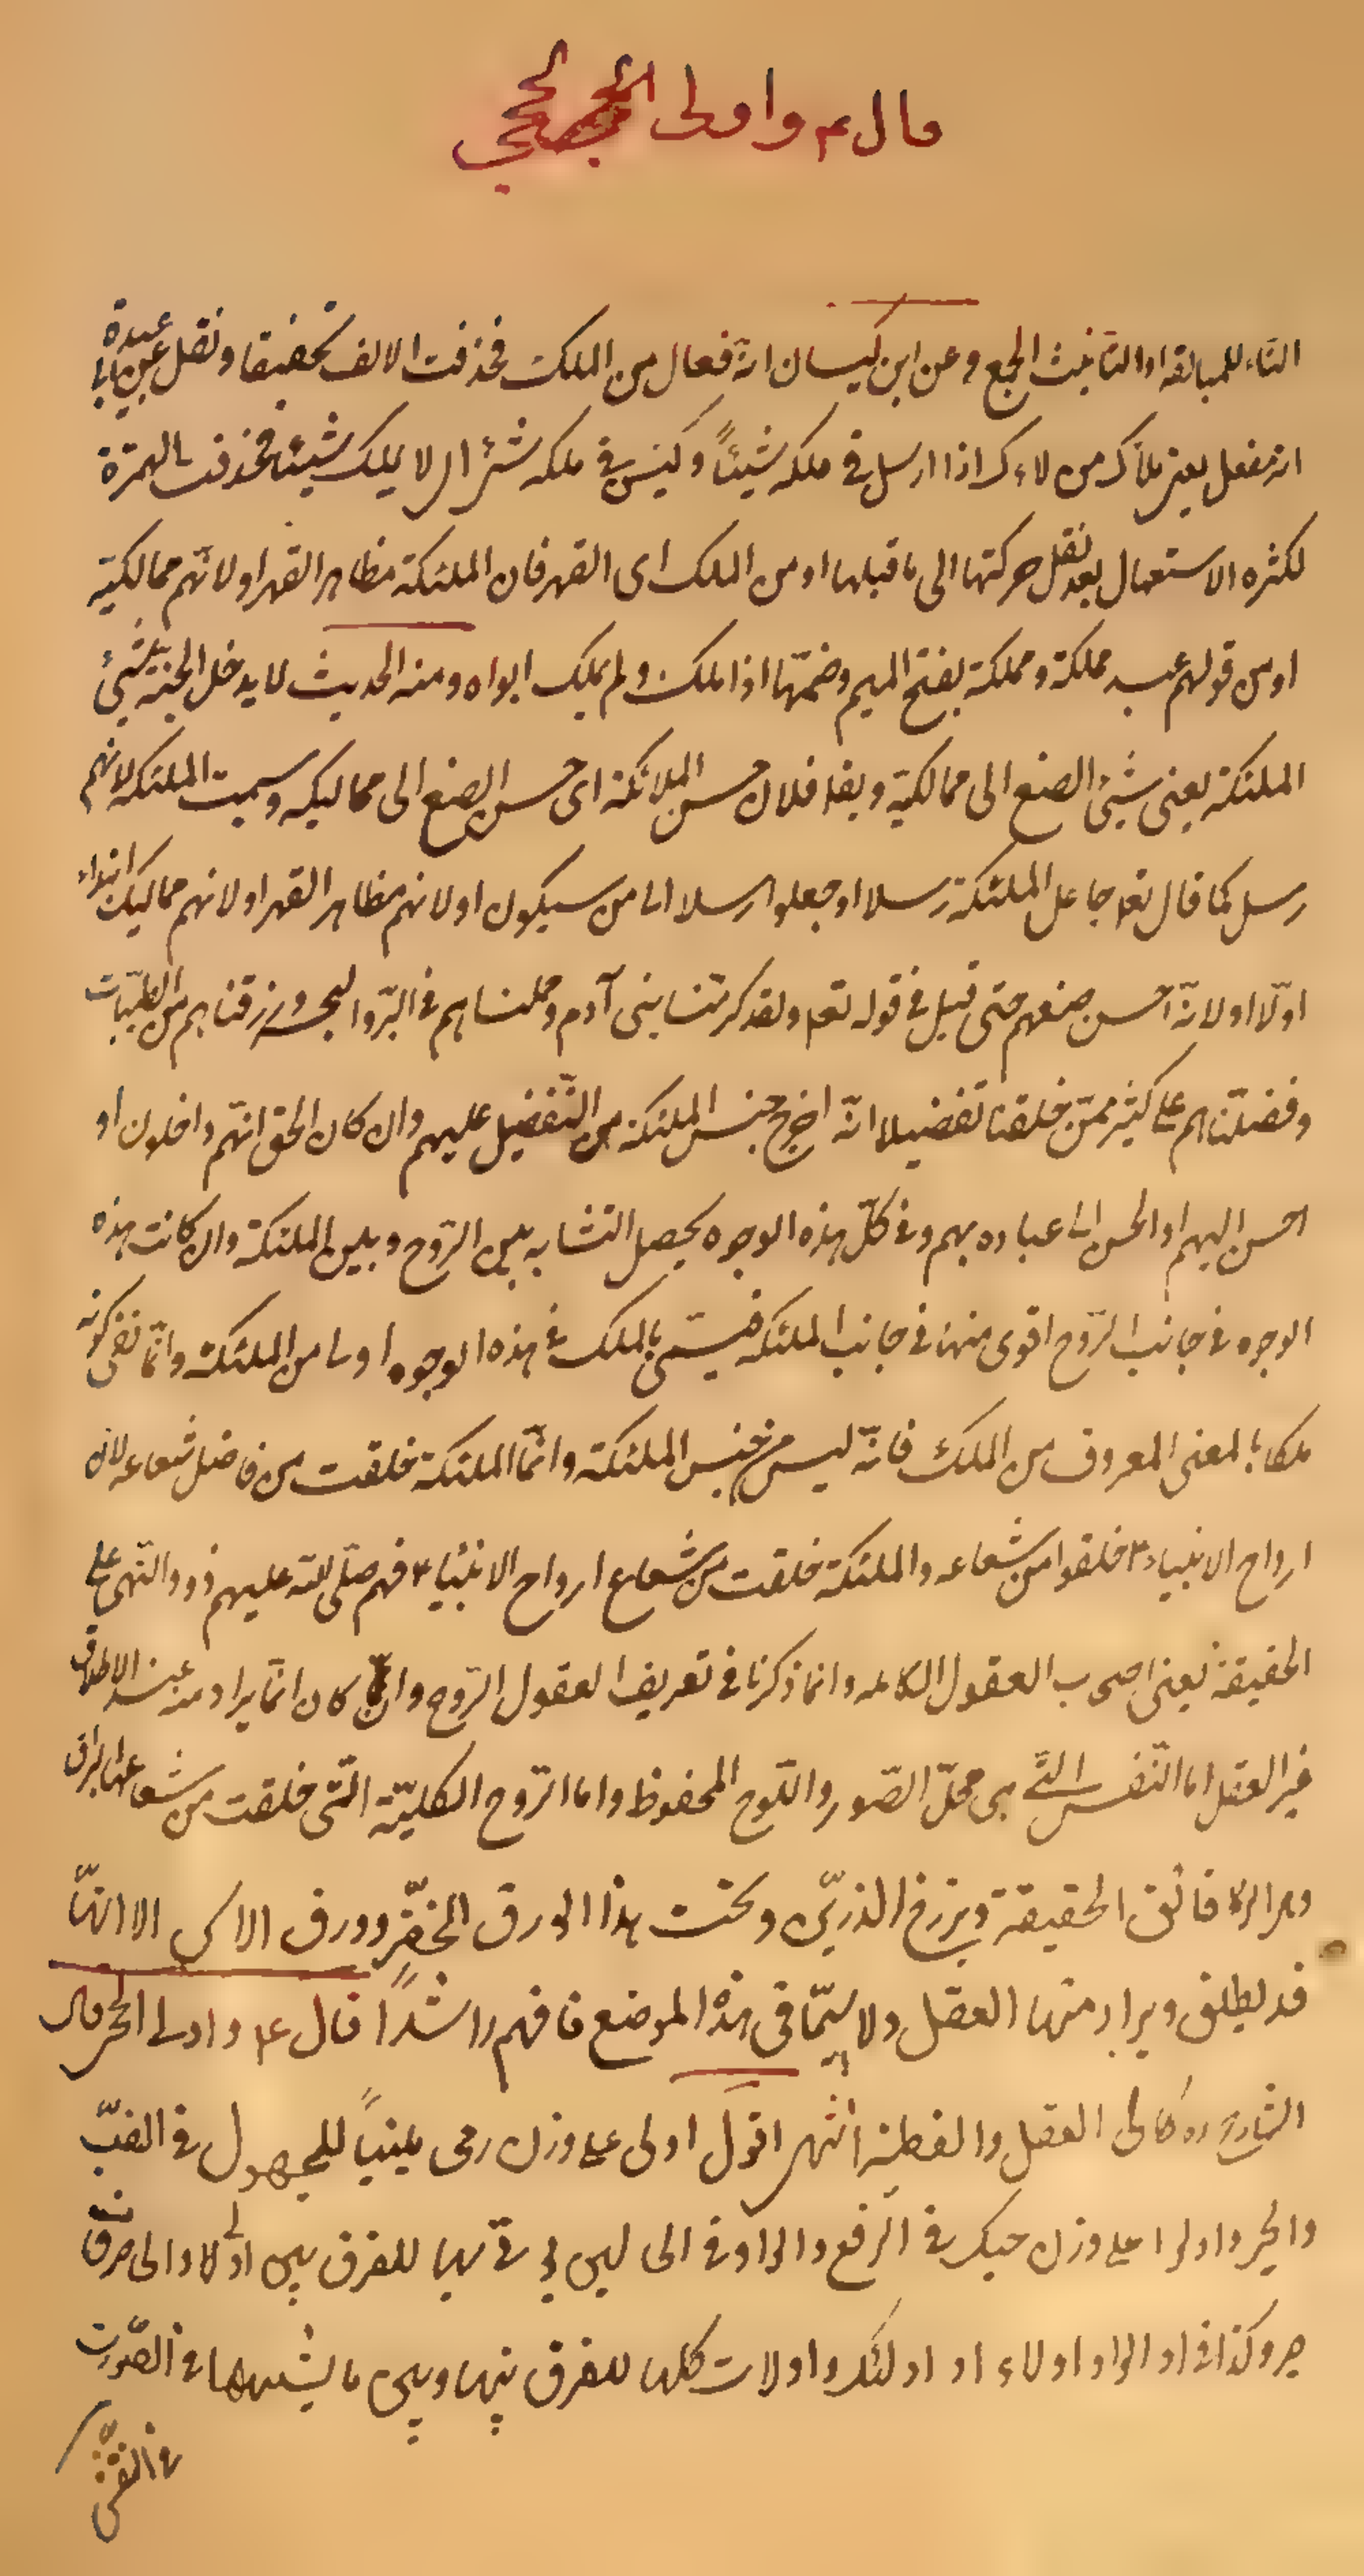 قال ع و اولى الحجى
التاء للمبالغة او التانيث الجمع و عن ابن كيسان انه فعال من الملك فحذفت الالف تخفيفا و نقل عن ابي عبيدة
انه مفعل بمعنى ملأك من لاءك اذا ارسل في ملكه شيئاً و ليس في ملكه شئ لا يملك شيئا فحذفت الهمزة
لكثره الاستعمال بعد نقل حركتها الى ما قبلها او من الملك اى القهر فان الملئكة مظاهر القهر او لانهم مماليكه
او من قولهم عبد مملكة و مملكة بفتح الميم و ضمّها اذا ملك و لم يملك ابواه و منه الحديث لا يدخل الجنة سيئ
الملئكة يعنى سيئ الصنع الى مماليكه و يقا فلان حسن الملائكة اى حسن الصنع الى مماليكه و سميت الملئكة لانهم
رسل كما قال تع جاعل الملئكة رسلا او جعلوا رسلا الى من سيكون او لانهم مظاهر القهر او لانهم مماليك ابتداء
اولا او لانه احسن صنعهم حتى قيل في قوله تعا و لقد كرمنا بنى آدم و حملناهم في البرّ و البحر و رزقناهم من الطيّبات
و فضلناهم على كثير ممّن خلقنا تفضيلا انّه اخرج جنس الملئكة من التفضيل عليهم و ان كان الحق انّهم داخلون او
احسن اليهم او احسن الى عباده بهم و في كلّ هذه الوجوه يحصل التشابه بين الرّوح و بين الملئكة و ان كانت هذه
الوجوه في جانب الرّوح اقوى منها في جانب الملئكة فيسمّى بالملك في هذه الوجوه اولى من الملئكة و انّما نفى كونه
ملكا بالمعنى المعروف من الملك فانّه ليس من جنس الملئكة و انّما الملئكة خلقت من فاضل شعاعه لان
ارواح الانبياء ع خلقوا من شعاعه و الملئكة خلقت من شعاع ارواح الانبياء ع فهم صلّى الله عليهم ذوو النّهى على
الحقيقة يعنى اصحاب العقول الكامله و انما ذكرنا في تعريف العقول الرّوح و ان كان انّما يراد منه عند الاطلاق
غير العقل اما النّفس الّتي هى محلّ الصّور و اللّوح المحفوظ و اما الرّوح الكليّة الّتى خلقت من شعاعها البراق
فائق الحقيقة و برزخ و تحت هذا الورق الخضر و ورق الاس الا انّها
قد يطلق و يراد منها العقل و لا سيّما في هذا الموضع فافهم راشداً قال ع و اولى الحجى قال
الشارح ره كالى العقل و الفطنة انتهى اقول اولى على وزن رمى مبنياً للمجهول في النصب
و الجر و اولوا على وزن في الرفع و الواو في للفرق بين اولا و الى حرف
جر و كذا في اولاء او اولئك و اولات كلها للفرق بينها و بين ما يشبهها في الصّورت